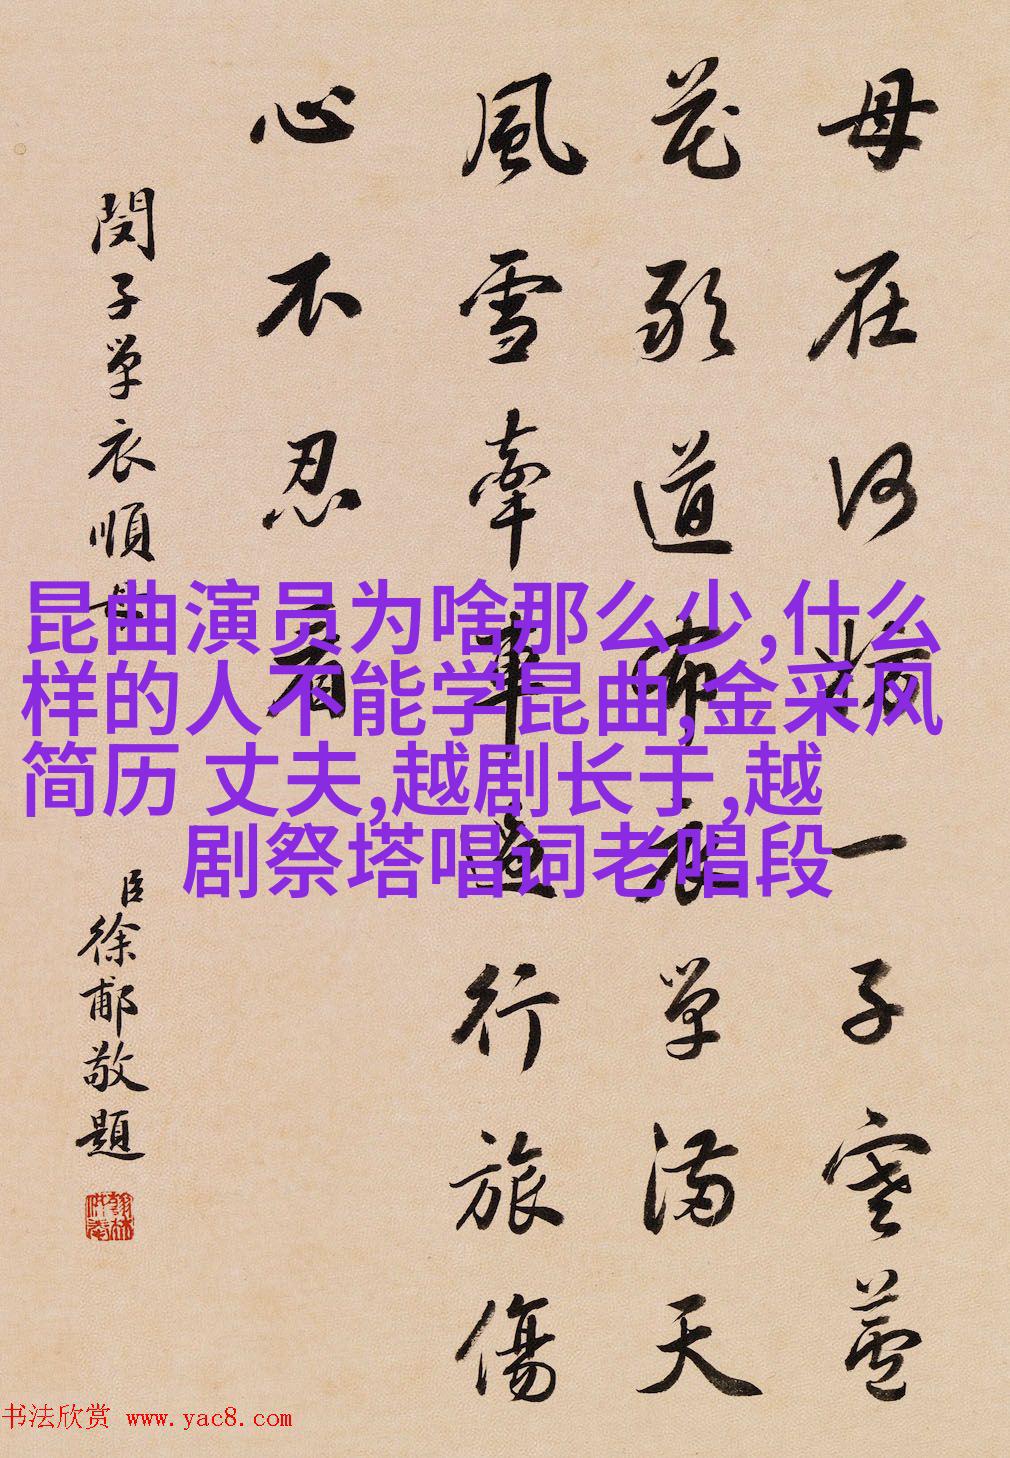 母在何妨一子寒蘆
花敢道布衣單滿天
風雪牽車行旅傷
心不忍看
閔子單衣順母
臣徐郙敬題
昆曲演员为啥那么少,什么
样的人不能学昆曲,金采凤
简历 丈夫,越剧长于,越
剧祭塔唱词老唱段
书法欣赏 www.yac8.com